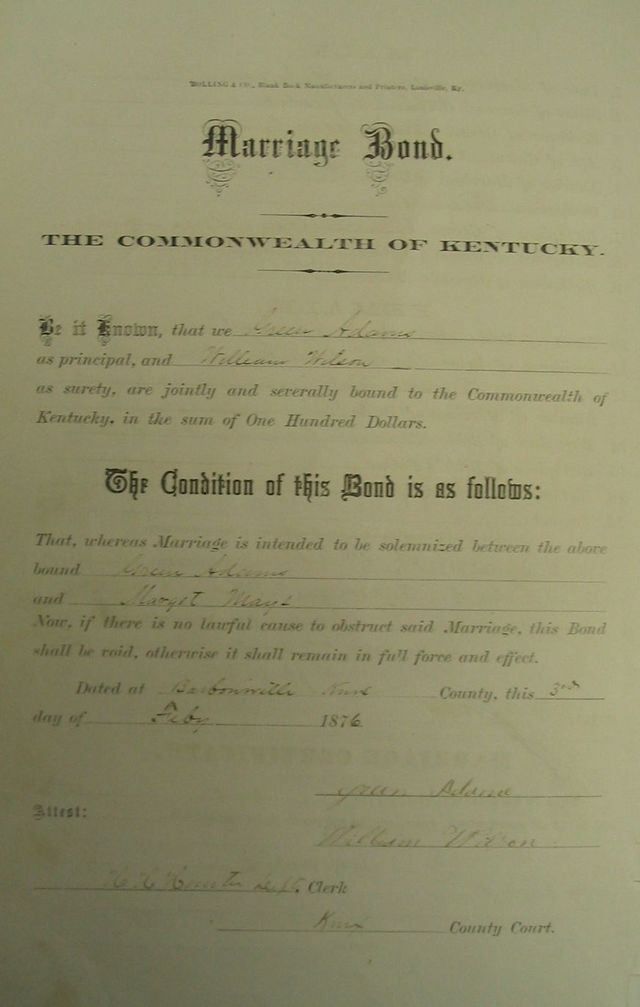 BOLLING & CO., Blank Book Manufacturers and Printers, Louisville, Ky.
Marriage Bond.
THE COMMONWEALTH OF KENTUCKY.
Be it Known, that we Green Adams
as principal, and William Wilson
as surety, are jointly and severally bound to the Commonwealth of
Kentucky, in the sum of One Hundred Dollars.
The Condition of this Bond is as follows:
That, whereas Marriage is intended to be solemnized between the above
bound Green Adams
and Marget Mays
Now, if there is no lawful cause to obstruct said Marriage, this Bond
shall be void, otherwise it shall remain in full force and effect.
Dated at Barbourville Knox County, this 3rd
day of Feby 1876
Green Adams
Attest:
William Wilson
Clerk
Knox County Court.